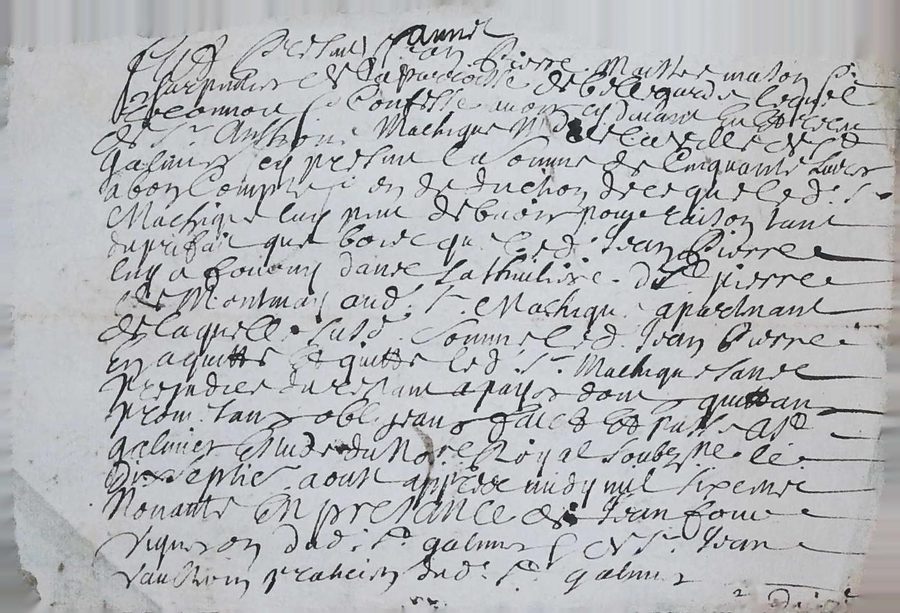 Jean Pierre Maittre masson
charpentier de la parroisse de bellegarde lequel
confesse avoir
de Sr Anthoine Machique de la ville de St
Galmier en presant la somme de cinquante livres
a bon compte en deduction de ce que led. Sr
Machique luy peut debvoir pour raison tant
du prifait que bois que led. Jean Pierre
luy a fourny dans la thuiliere de pierre
de Montmain aud. Sr Machique apartenant
de laquelle susd. somme led. Jean Pierre
en aquitte et quitte led. Sr Machique sans
prejudice du restant a payer dont quittan
prom. oblig. faict et passe a St
galmier estude du nore Royal soubzne le
dix septie aoust appres midy mil six cent
nonante en presance de Jean
vigneron dud. St galmier et de Sr Jean
praticien dud. St galmier